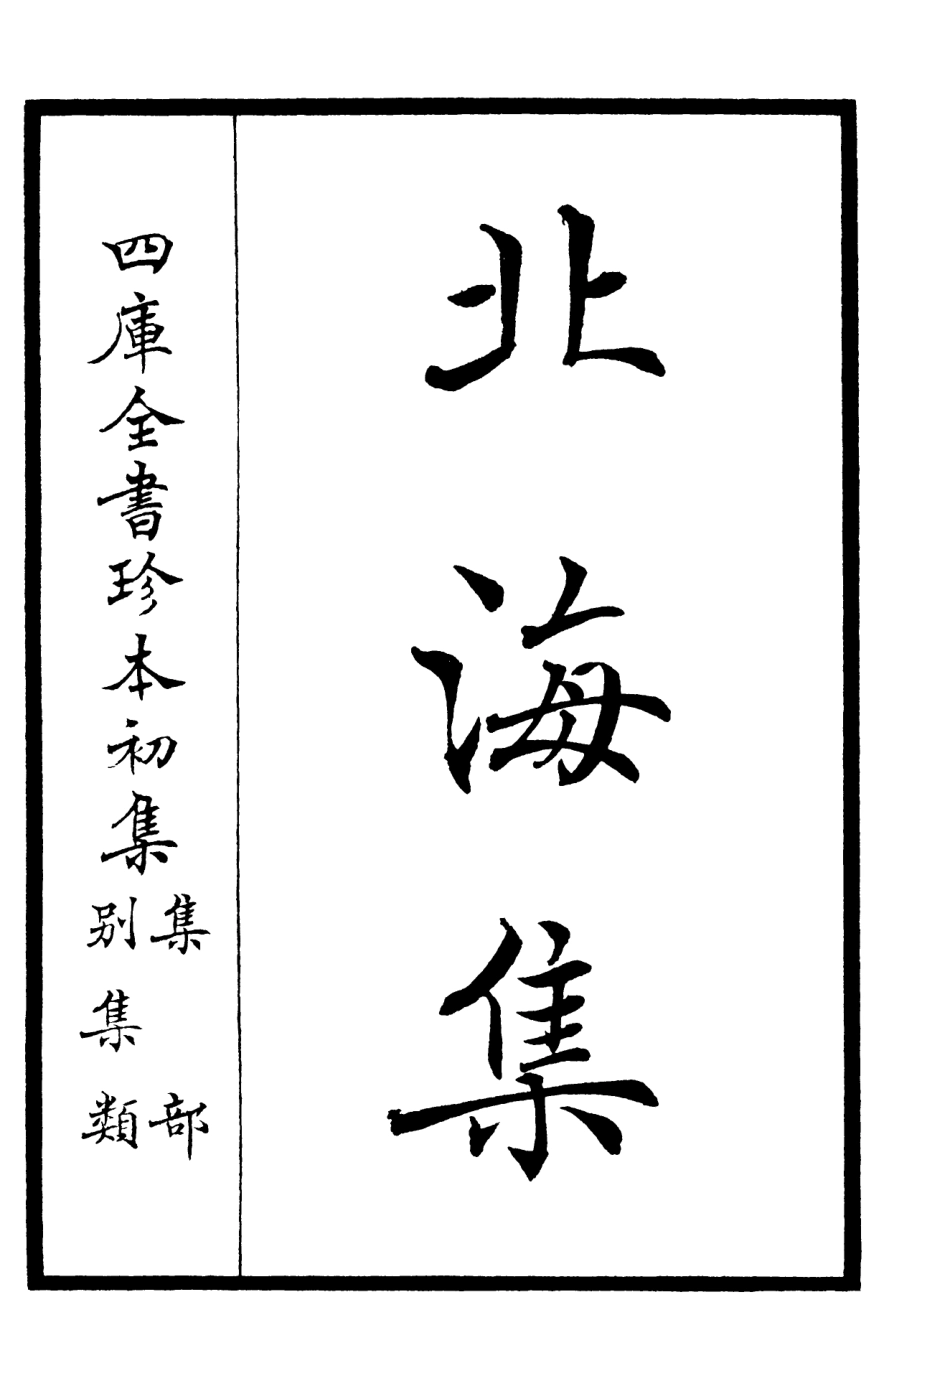 北海集
四庫全書珍本初集
集部
別集類